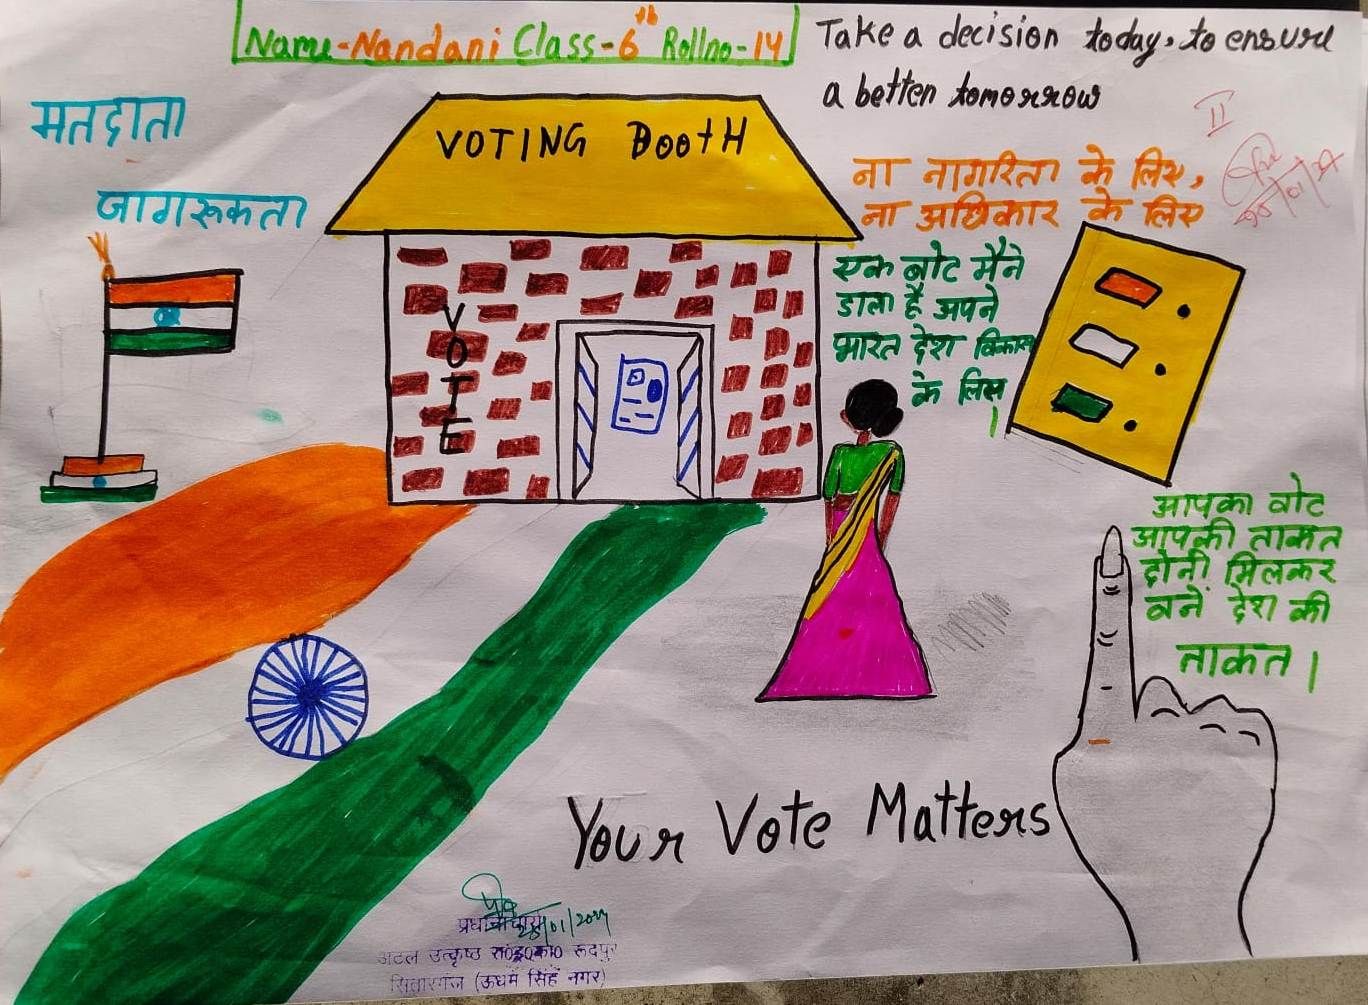 Name-Nandani Class-6th Rollno-14
Take a decision today, to ensure
a better tomorrow
मतदाता
जागरूकता
VOTING BOOTH
II
ना नागरिता के लिए,
ना अधिकार के लिए
एक वोट मैने
डाला है अपने
भारत देश विकास
के लिए
।
VOTE
आपका वोट
आपकी ताकत
दोनों मिलकर
बनें देश की
ताकत।
Your Vote Matters
प्रधानाचार्य
अटल उत्कृष्ठ रा०इ०का० रूद्रपुर
सितारगंज (ऊधम सिंह नगर)